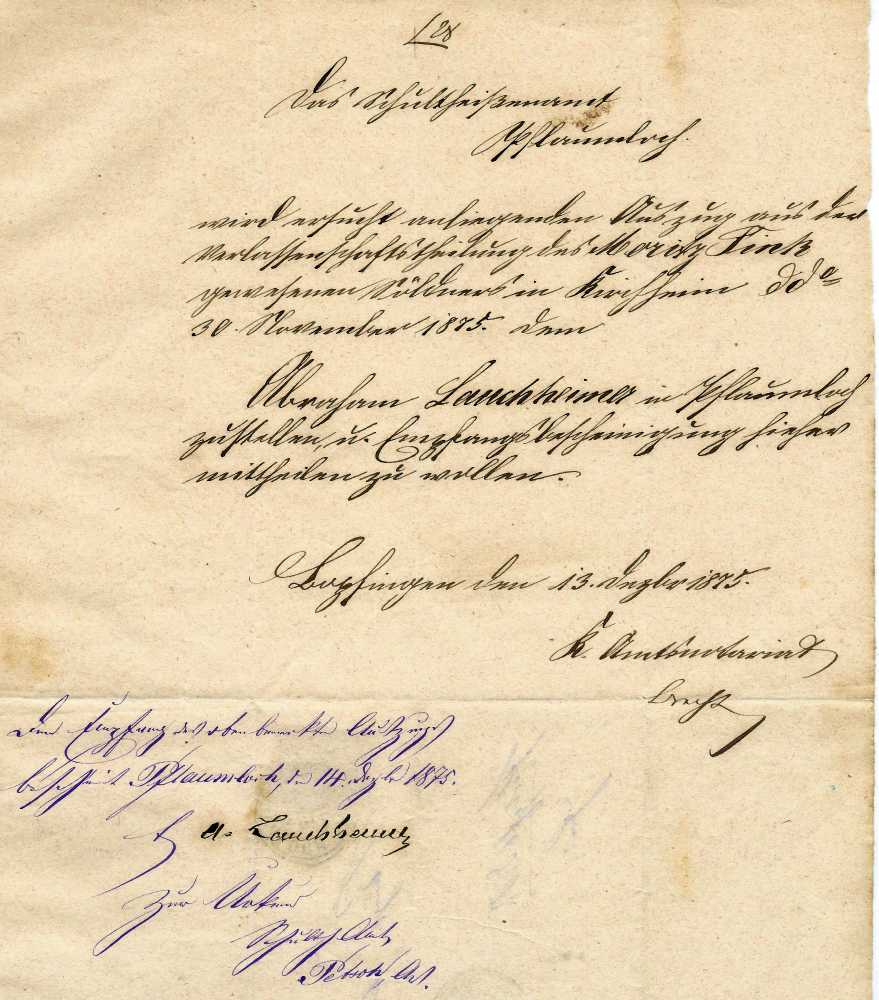 28
Das Schultheißenamt
Pflaumloch.
wird ersucht anliegenden Auszug aus der
Verlassenschaftstheilung des Moritz Fink
gewesenen Söldners in Kirchheim dda
30. November 1875. dem
Abraham Lauchheimer in Pflaumloch
zustellen, u. Empfangsbescheinigung hieher
mittheilen zu wollen.
Bopfingen den 13. Dezbr 1875.
K. Amtsnotariat
Den Empfang des oben bemerkten Auszugs
bescheint Pflaumloch, den 14. Dezbr 1875.
A. Lauchheimer
Zur Urkund
Schulth Amt